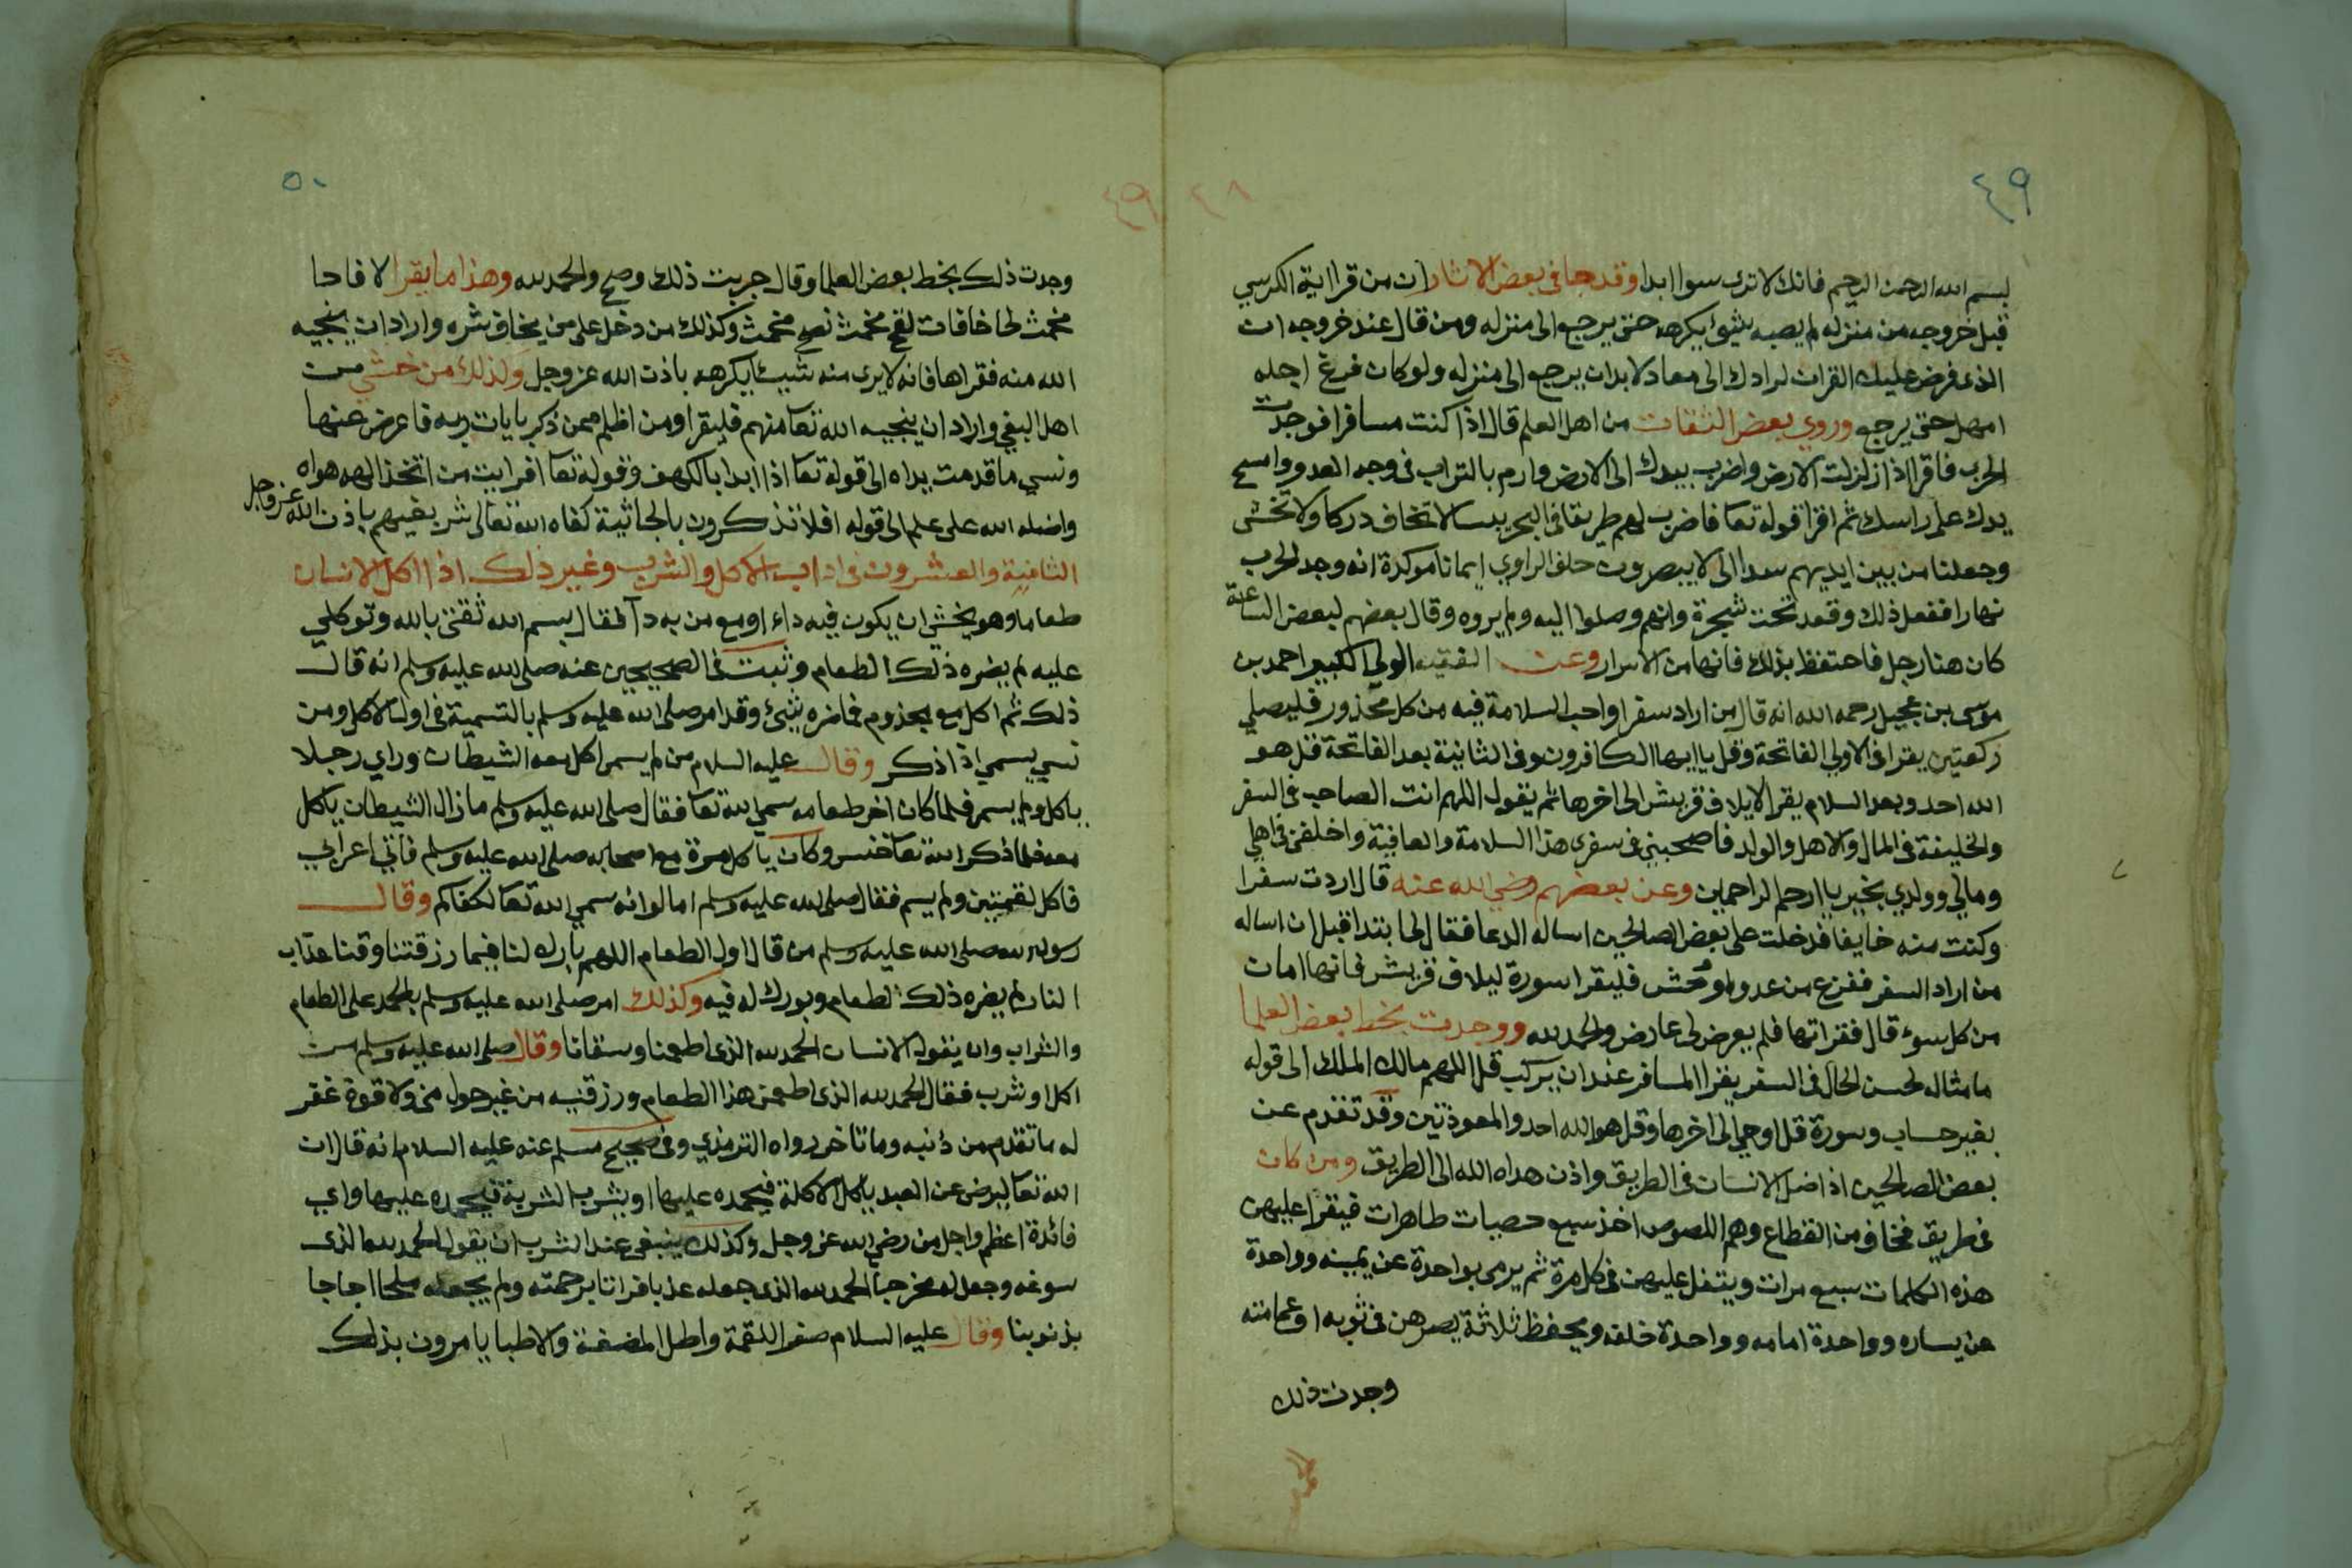 ٤٩
بسم الله الرحمن الرحيم فانك لا ترى سوا ابدا وقد جا في بعض الاثار ان من قرا اية الكرسي
قبل خروجه من منزله لم يصبه شيئ يكرهه حتى يرجع الى منزله ومن قال عند خروجه ان
الذي فرض عليك القران لرادك الى معاد لابد ان يرجع الى منزله ولو كان فرغ اجله
امهل حتى يرجع وروي بعض الثقات من اهل العلم قال اذا كنت مسافرا فوجدت
الحرب فاقرا اذا زلزلت الارض واضرب بيدك الى الارض وارم بالتراب في وجه العدو وامسح
يدك على راسك ثم اقرا قوله تعا فاضرب لهم طريقا في البحر يبسا لا تخاف دركا ولا تخشى
وجعلنا من بين ايديهم سدا الى لا يبصرون حلف الراوي ايمانا موكدة انه وجد الحرب
نهارا ففعل ذلك وقعد تحت شجرة وانهم وصلوا اليه ولم يروه وقال بعضهم لبعض الساعة
كان هنا رجل فاحتفظ بذلك فانها من الاسرار وعن الفقيه الولي الكبير احمد بن
موسى بن عجيل رحمه الله انه قال من اراد سفرا واحب السلامة فيه من كل محذور فليصلي
ركعتين يقرا في الاولي الفاتحة وقل ياايها الكافرون وفي الثانية بعد الفاتحة قل هو
الله احد وبعد السلام يقرا لايلاف قريش الى اخرها ثم يقول اللهم انت الصاحب في السفر
والخليفة في المال والاهل والولد فاصحبني في سفري هذا السلامة والعافية واخلفني في اهلي
ومالي وولدي بخير يا ارحم الراحمين وعن بعضهم رضي الله عنه قال اردت سفرا
وكنت منه خايفا فدخلت على بعض الصالحين اساله الدعا فقال لي ابتدا قبل ان اساله
من اراد السفر ففزع من عدو او وحش فليقرا سورة ليلاف قريش فانها امان
من كل سوء قال فقراتها فلم يعرض لي عارض والحمد لله ووجدت بخط بعض العلما
ما مثاله لحسن الحال في السفر يقرا المسافر عند ان يركب قل اللهم مالك الملك الى قوله
بغير حساب وسورة قل اوحي الى اخرها وقل هو الله احد والمعوذتين وقد تقدم عن
بعض الصالحين اذا ضل الانسان في الطريق واذن هداه الله الى الطريق ومن كان
في طريق فخاف من القطاع وهم اللصوص اخذ سبع حصيات طاهرات فيقرا عليهن
هذه الكلمات سبع مرات ويتفل عليهن في كل مرة ثم يرمي بواحدة عن يمينه وواحدة
عن يساره وواحدة امامه وواحدة خلفه ويحفظ ثلاثة يصرهن في ثوبه او عمامته
وجدت ذلك
٥٠
وجدت ذلك بخط بعض العلما وقال جربت ذلك وصح والحمد لله وهذا ما يقرا لا فاحا
مخمث لخا خافات لفح مخمث نصح مخمث وكذلك من دخل على من يخاف شره واراد ان ينجيه
الله منه فقراها فانه لا يرى منه شيئا يكرهه باذن الله عز وجل وكذلك من خشي من
اهل البغي واراد ان ينجيه الله تعا منهم فليقرا ومن اظلم ممن ذكر بايات ربه فاعرض عنها
ونسي ما قدمت يداه الى قوله تعا اذا ابدا بالكهف وقوله تعا افرايت من اتخذ الهه هواه
واضله الله على علم الى قوله افلا تذكرون بالجاثية كفاه الله تعالى شر بغيهم باذن الله عز وجل
الثانية والعشرون في اداب الاكل والشرب وغير ذلك اذا اكل الانسان
طعاما وهو يخشى ان يكون فيه داء او مع من به دآ فقال بسم الله ثقتي بالله وتوكلي
عليه لم يضره ذلك الطعام وثبت في الصحيحين عنه صلى الله عليه وسلم انه قال
ذلك ثم اكل مع مجذوم فما ضره شئ وقد امر صلى الله عليه وسلم بالتسمية في اول الاكل ومن
نسي يسمي اذا ذكر وقال عليه السلام من لم يسم اكل معه الشيطان وراي رجلا
ياكل ولم يسم فلما كان اخر طعامه سمي الله تعا فقال صلى الله عليه وسلم ما زال الشيطان ياكل
معه فلما ذكر الله تعا خنس وكان ياكل مرة مع اصحابه صلى الله عليه وسلم فاتي اعرابي
فاكل لقمتين ولم يسم فقال صلى الله عليه وسلم اما لو انه سمي الله تعا لكفاكم وقال
رسول الله صلى الله عليه وسلم من قال اول الطعام اللهم بارك لنا فيما رزقتنا وقنا عذاب
النار لم يضره ذلك الطعام وبورك له فيه وكذلك امر صلى الله عليه وسلم بالحمد على الطعام
والشراب وان يقول الانسان الحمد لله الذي اطعمنا وسقانا وقال صلى الله عليه وسلم من
اكل او شرب فقال الحمد لله الذي اطعمني هذا الطعام ورزقنيه من غير حول مني ولا قوة غفر
له ما تقدم من ذنبه وما تاخر رواه الترمذي وفي صحيح مسلم عنه عليه السلام انه قال ان
الله تعا ليرضى عن العبد ياكل الاكلة فيحمده عليها او يشرب الشربة فيحمده عليها واي
فائدة اعظم واجل من رضي الله عز وجل وكذلك ينبغي عند الشرب ان يقول الحمد لله الذي
سوغه وجعل له مخرجا الحمد لله الذي جعله عذبا فراتا برحمته ولم يجعله ملحا اجاجا
بذنوبنا وقال عليه السلام صغر اللقمة واطل المضغة والاطبا يامرون بذلك